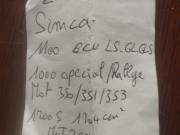 Simca
1100 GCV LS.GL.GS
1000 special/Rallye
Mot 350/351/353
1200S 1204 cm³
Mot